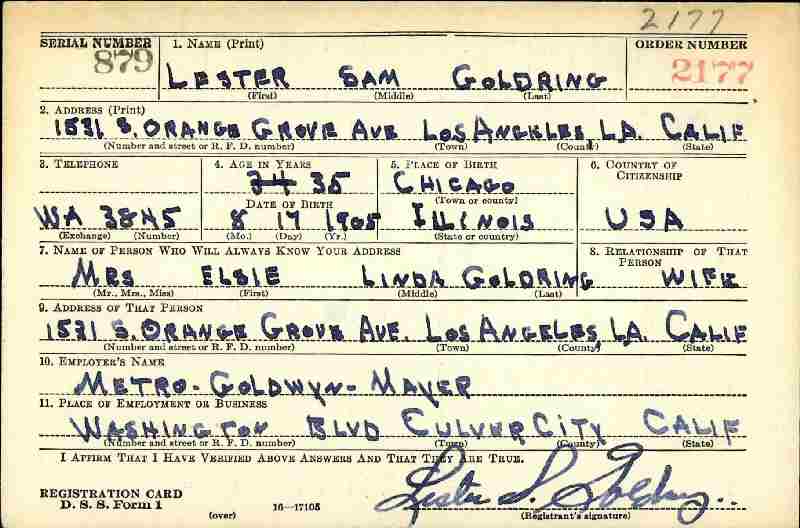 2177
SERIAL NUMBER 1. NAME (Print) ORDER NUMBER
879 LESTER SAM GOLDRING 2177
(First) (Middle) (Last)
2. ADDRESS (Print)
1531 S. ORANGE GROVE AVE LOS ANGELES, LA. CALIF
(Number and street or R. F. D. number) (Town) (County) (State)
3. TELEPHONE 4. AGE IN YEARS 5. PLACE OF BIRTH 6. COUNTRY OF CITIZENSHIP
34 35 CHICAGO
DATE OF BIRTH (Town or county)
WA 3845 8 17 1905 ILLINOIS USA
(Exchange) (Number) (Mo.) (Day) (Yr.) (State or country)
7. NAME OF PERSON WHO WILL ALWAYS KNOW YOUR ADDRESS 8. RELATIONSHIP OF THAT PERSON
MRS ELSIE LINDA GOLDRING WIFE
(Mr., Mrs., Miss) (First) (Middle) (Last)
9. ADDRESS OF THAT PERSON
1531 S. ORANGE GROVE AVE. LOS ANGELES, LA. CALIF
(Number and street or R. F. D. number) (Town) (County) (State)
10. EMPLOYER'S NAME
METRO-GOLDWYN-MAYER
11. PLACE OF EMPLOYMENT OR BUSINESS
WASHINGTON BLVD CULVER CITY CALIF
(Number and street or R. F. D. number) (Town) (County) (State)
I AFFIRM THAT I HAVE VERIFIED ABOVE ANSWERS AND THAT THEY ARE TRUE.
Lester S. Goldring
REGISTRATION CARD
D. S. S. Form 1 (over) 16—17105 (Registrant's signature)